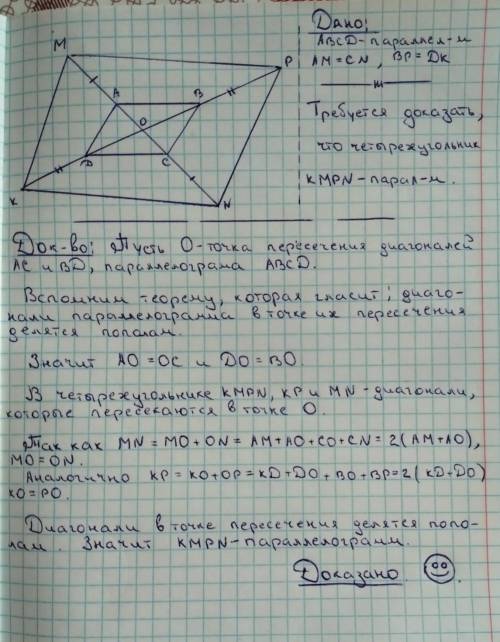 Дано:
ABCD-параллел-м
AM=CN, BP=DK
Требуется доказать,
что четырехугольник
KMPN-парал-м.
M
P
A
B
O
D
C
K
N
Док-во: Пусть O-точка пересечения диагоналей
AC и BD, параллелограма ABCD.
Вспомним теорему, которая гласит: диаго-
нали параллелограмма в точке их пересечения
делятся пополам.
Значит AO=OC и DO=BO.
В четырехугольнике KMPN, KP и MN-диагонали,
которые пересекаются в точке O.
Так как MN=MO+ON=AM+AO+CO+CN=2(AM+AO),
MO=ON.
Аналогично KP=KO+OP=KD+DO+BO+BP=2(KD+DO)
KO=PO.
Диагонали в точке пересечения делятся попо-
лам. Значит KMPN-параллелограмм.
Доказано.